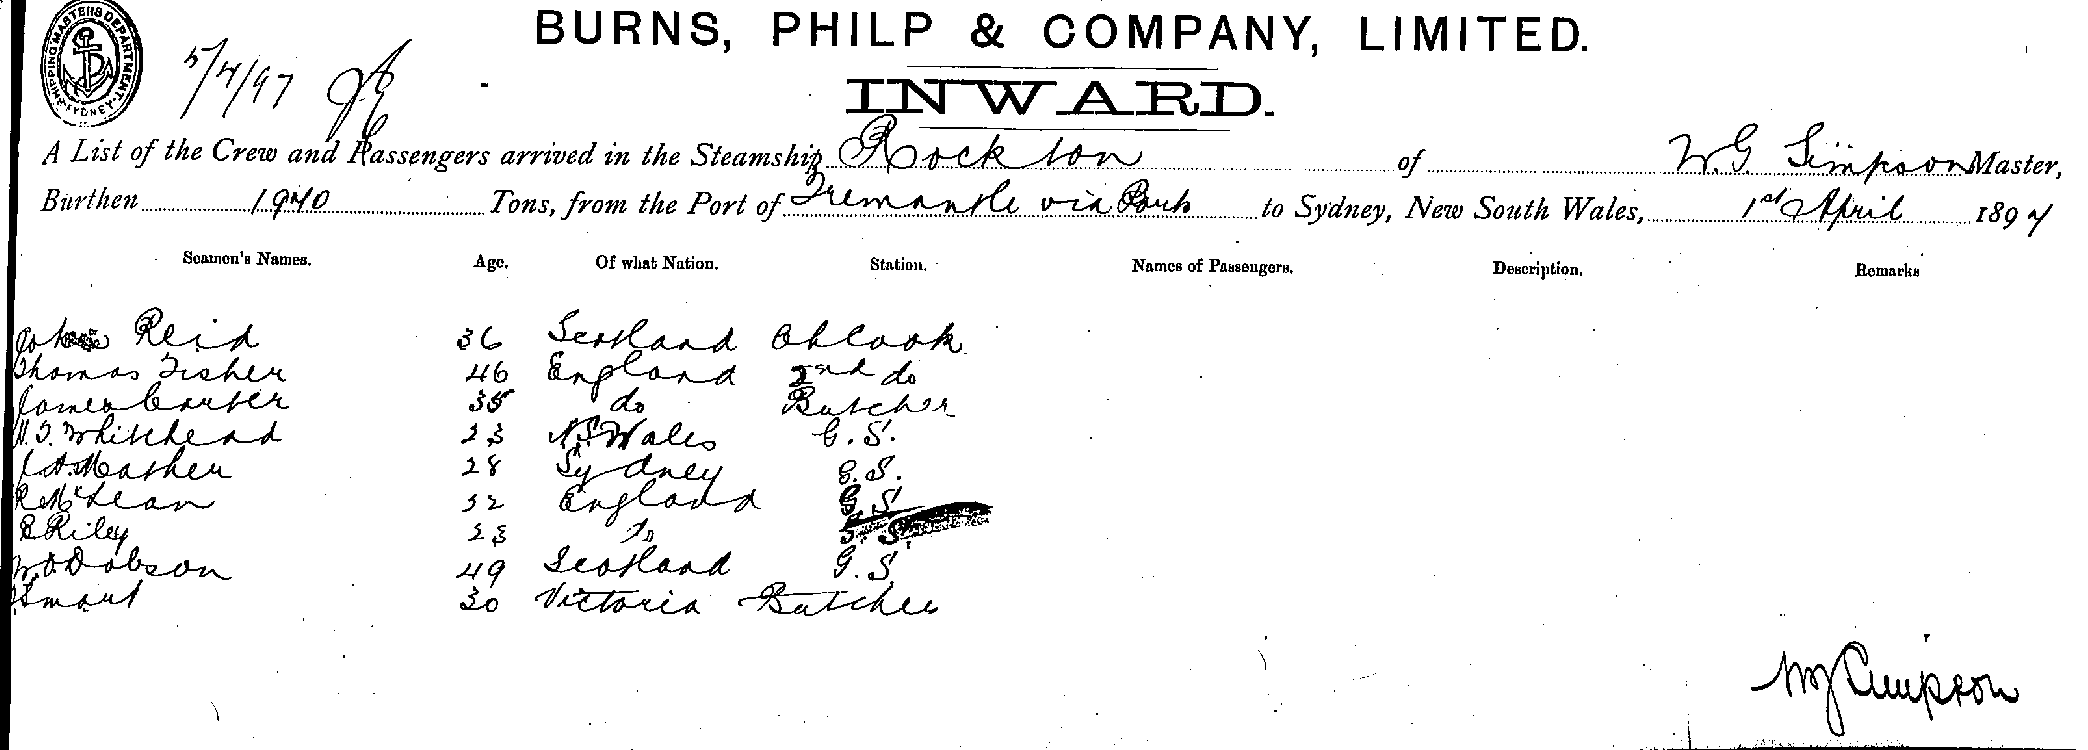 BURNS, PHILP & COMPANY, LIMITED.
SHIPPING MASTERS DEPARTMENT SYDNEY
5/4/97
INWARD.
A List of the Crew and Passengers arrived in the Steamship Rockton of W. G. Simpson Master,
Burthen 1940 Tons, from the Port of Fremantle via Ports to Sydney, New South Wales, 1st April 1897
Seamen's Names. Age. Of what Nation. Station. Names of Passengers. Description. Remarks
John Reid 36 Scotland Ch Cook
Thomas Fisher 46 England 2nd do
James Carter 35 do Butcher
Whitehead 23 N.S Wales G. S.
Mather 28 Sydney G. S.
R McLean 32 England G. S.
E Riley 23 Do
Dobson 49 Scotland G. S.
Smart 30 Victoria Butcher
W G Simpson